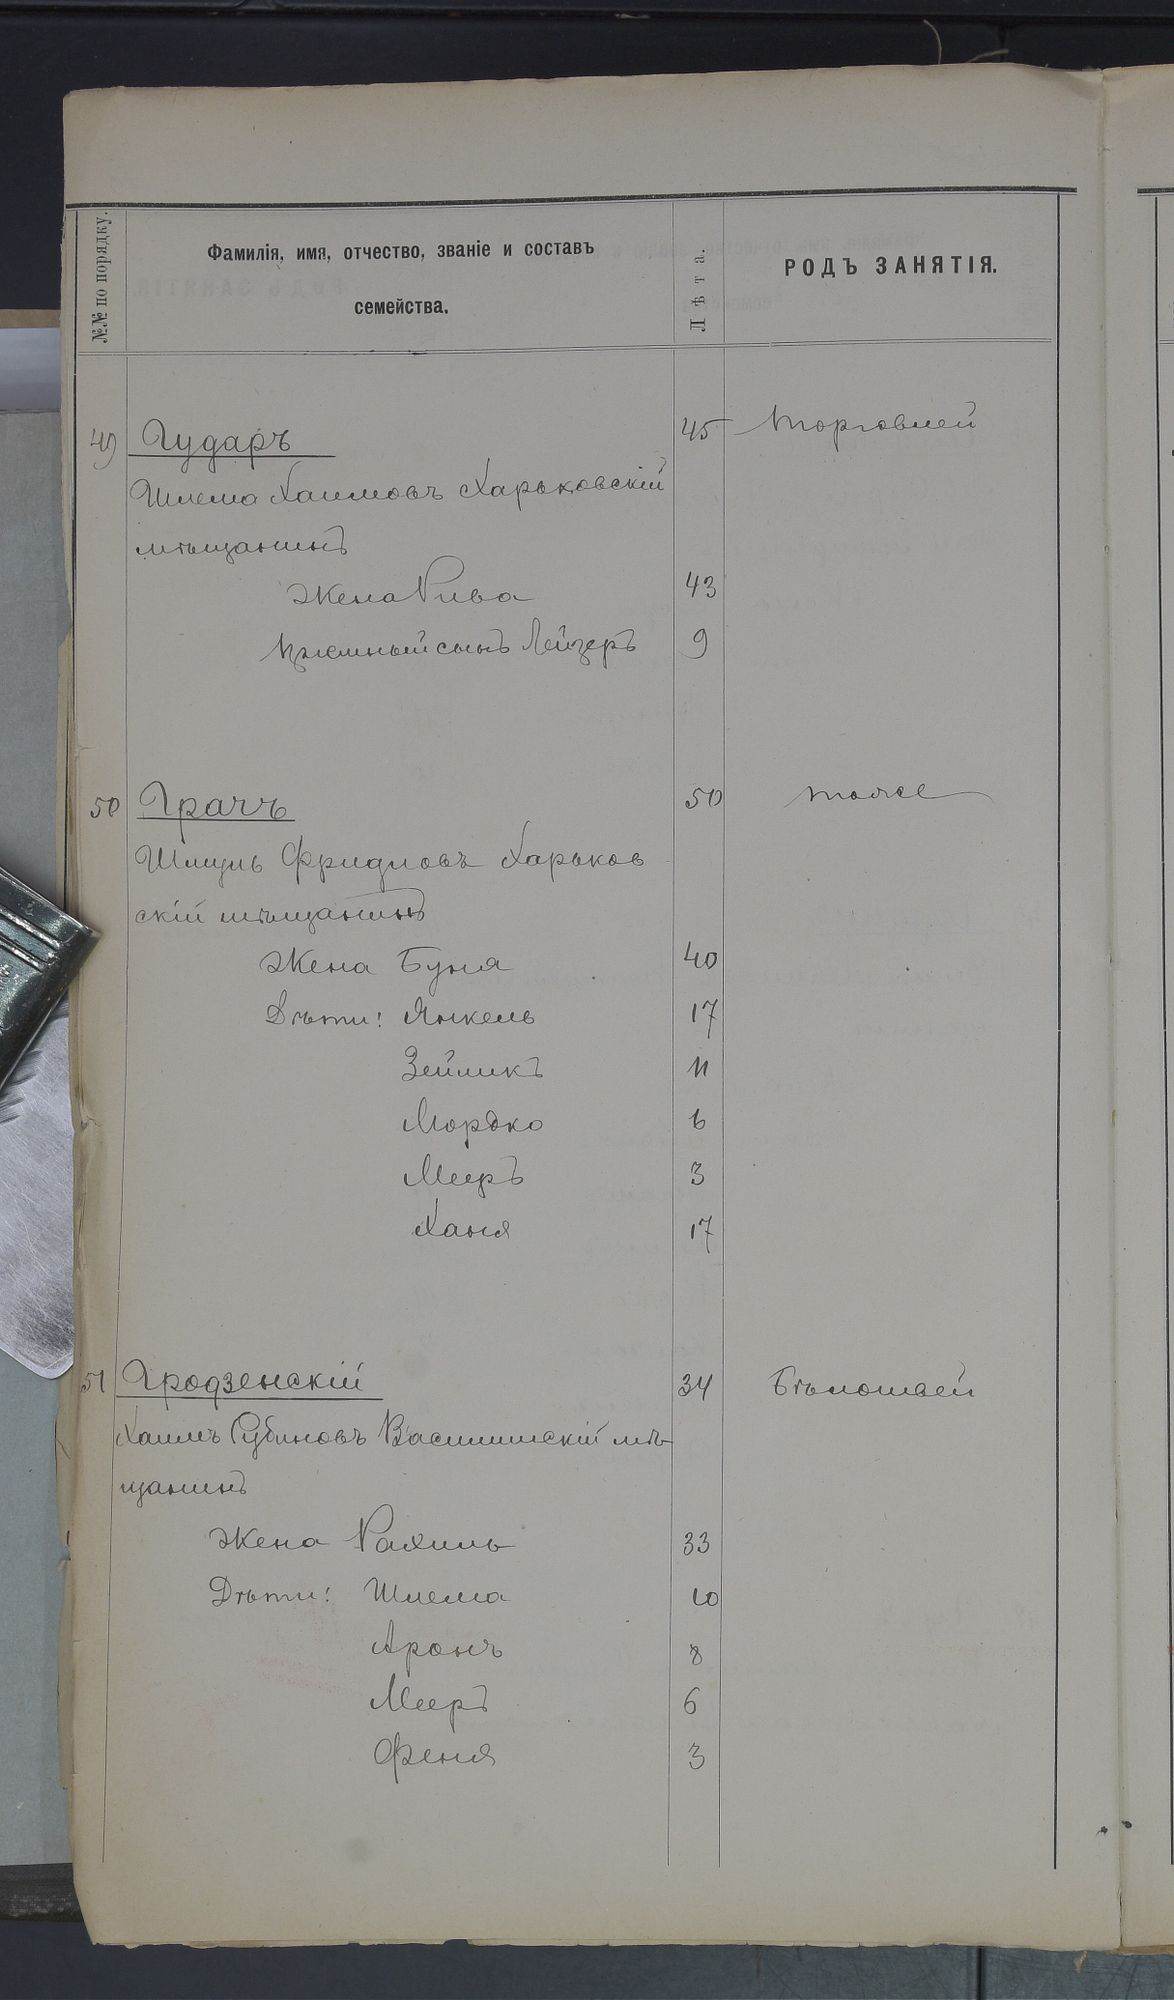 №№ по порядку.
Фамилія, имя, отчество, званіе и составъ
семейства.
Лѣта.
РОДЪ ЗАНЯТІЯ.
49 Гударъ 45 торговлей
Шлема Хаимовъ Харьковскій
мѣщанинъ
Жена Рива 43
Пріемный сынъ Лейзеръ 9
50 Грачъ 50 тоже
Шмуль Фридловъ Харьков
скій мѣщанинъ
Жена Буня 40
Дѣти: Янкель 17
Зейликъ 11
Мордко 6
Мееръ 3
Ханя 17
51 Гродзенскій 34 Бѣлошвей
Хаимъ Рубиновъ Василишскій мѣ-
щанинъ
Жена Рахиль 33
Дѣти: Шлема 10
Аронъ 8
Мееръ 6
Феня 3